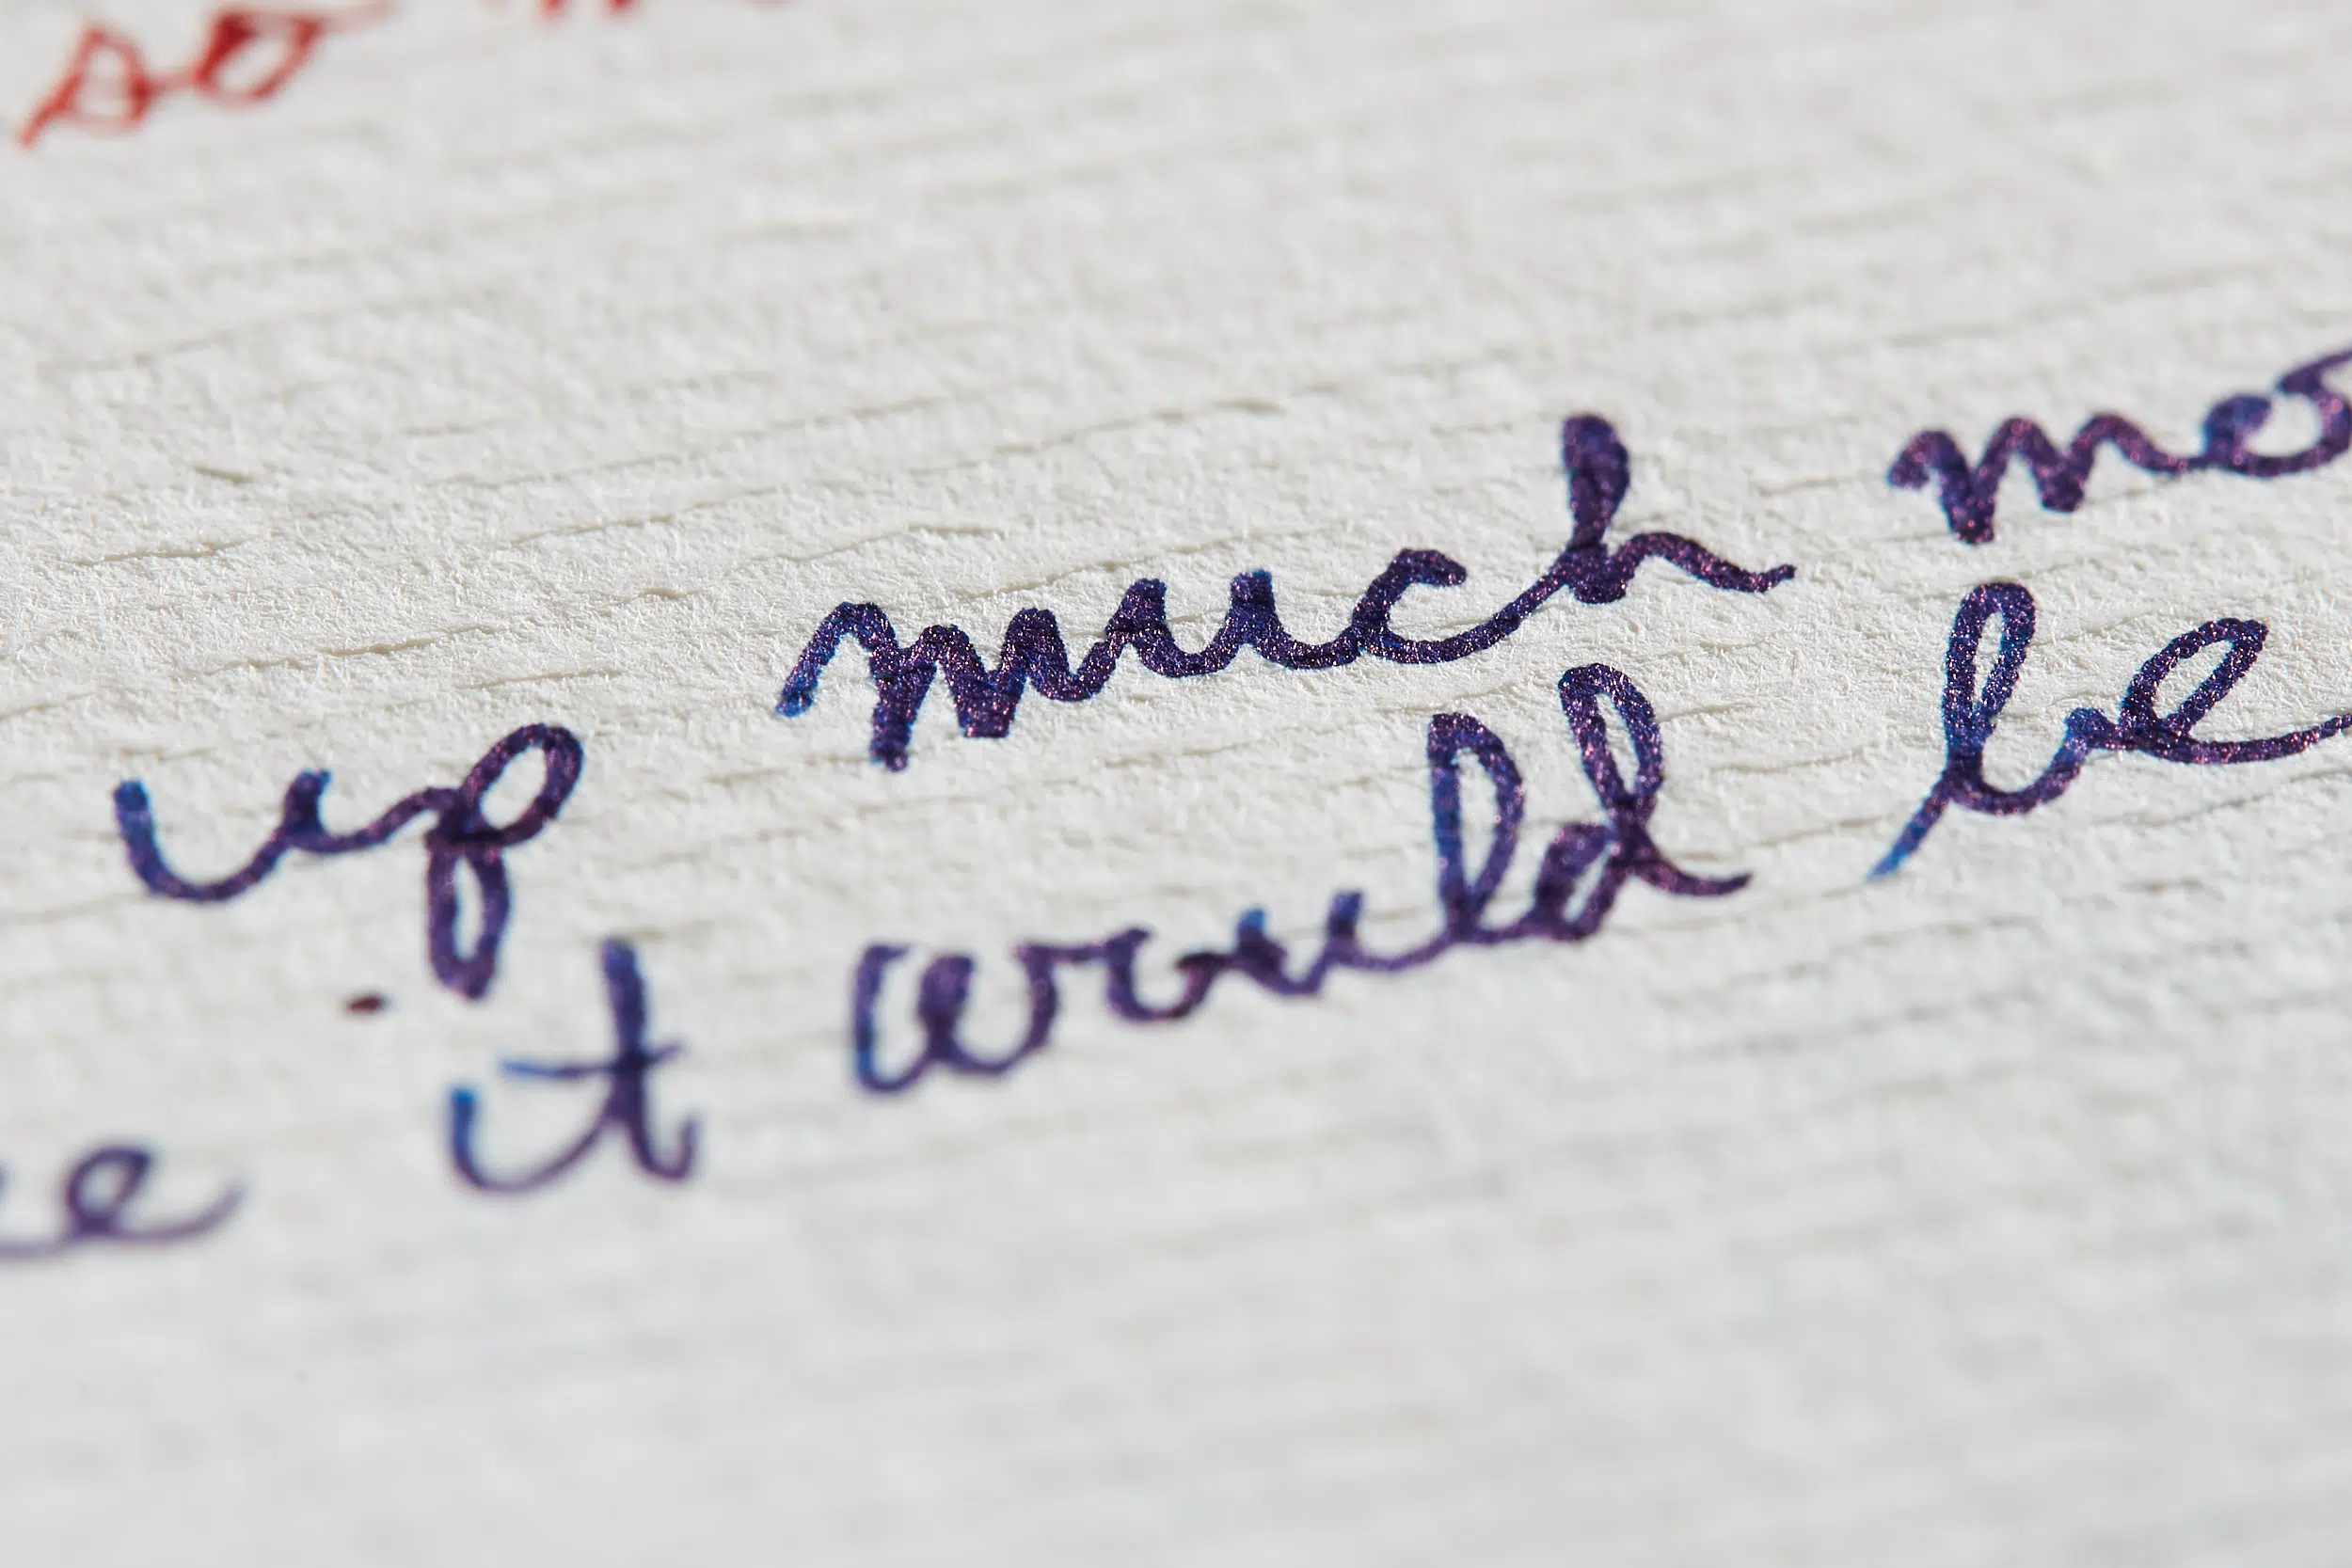 so
up much mo
it would be